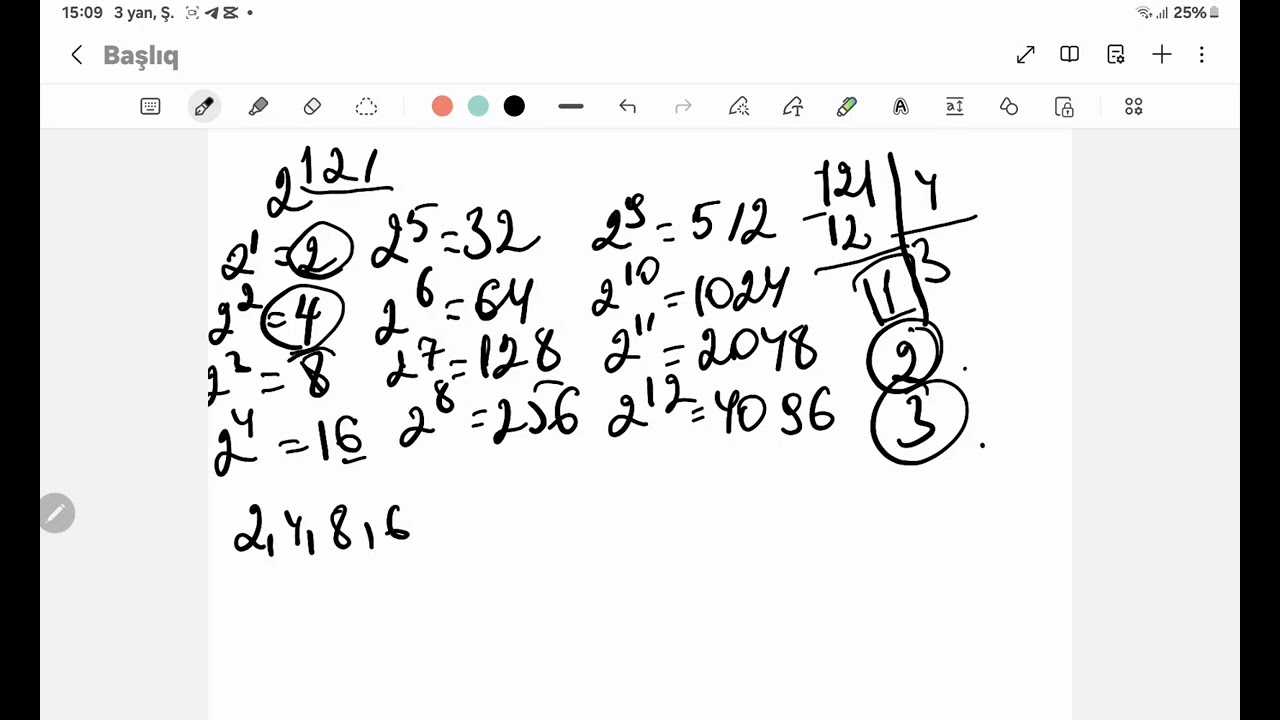 15:09 3 yan, Ş. 25%
Başlıq
2^121
2^1 = 2 2^5 = 32 2^9 = 512
2^2 = 4 2^6 = 64 2^10 = 1024
2^3 = 8 2^7 = 128 2^11 = 2048
2^4 = 16 2^8 = 256 2^12 = 4096
2, 4, 8, 6
121 | 4
-12 | 3
1
2
3